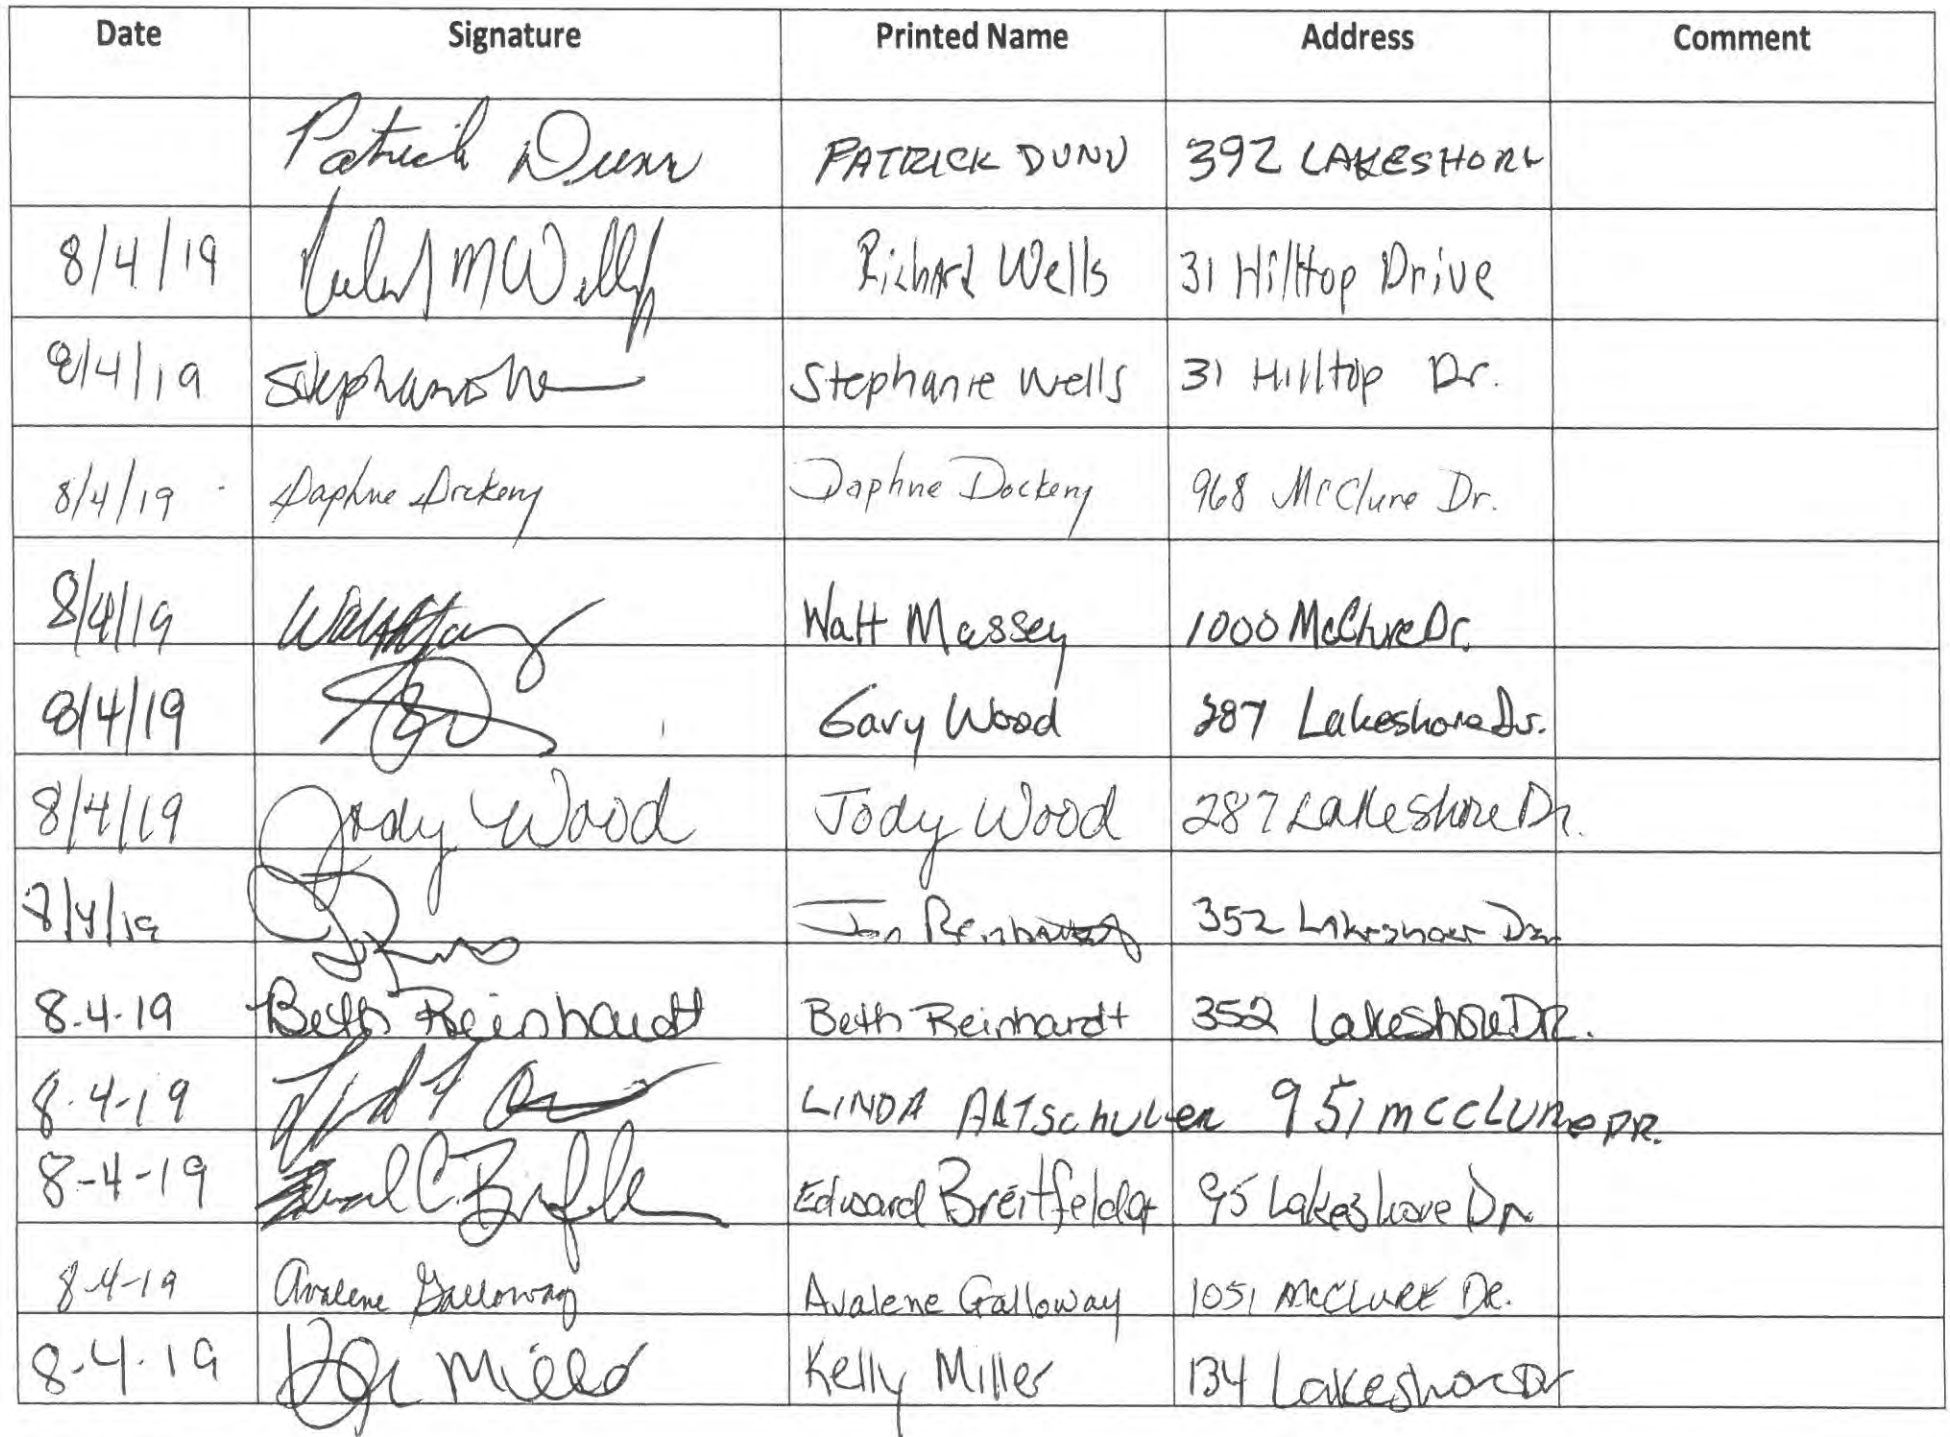 Date Signature Printed Name Address Comment
Patrick Dunn PATRICK DUNN 392 LAKESHORE
8/4/19 Richard Wells 31 Hilltop Drive
8/4/19 Stephanie Wells 31 Hilltop Dr.
8/4/19 Daphne Dockery Daphne Dockery 968 McClure Dr.
8/4/19 Walt Massey 1000 McClure Dr.
8/4/19 Gary Wood 287 Lakeshore Dr.
8/4/19 Jody Wood Jody Wood 287 Lakeshore Dr.
8/4/19 Jon Reinhardt 352 Lakeshore Dr
8.4.19 Beth Reinhardt Beth Reinhardt 352 Lakeshore DR.
8.4-19 LINDA ALTSchULer 951 mcCLUre DR.
8-4-19 Edward Breitfelder 95 Lakeshore Dr
8-4-19 Avalene Galloway Avalene Galloway 1051 McCLURE DR.
8-4-19 Miller Kelly Miller 134 Lakeshore Dr